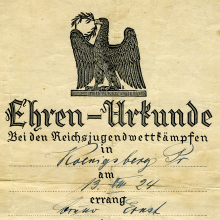 Ehren-Urkunde
Bei den Reichsjugendwettkämpfen
in
Koenigsberg Pr
am
13 VII 24
errang
Ernst